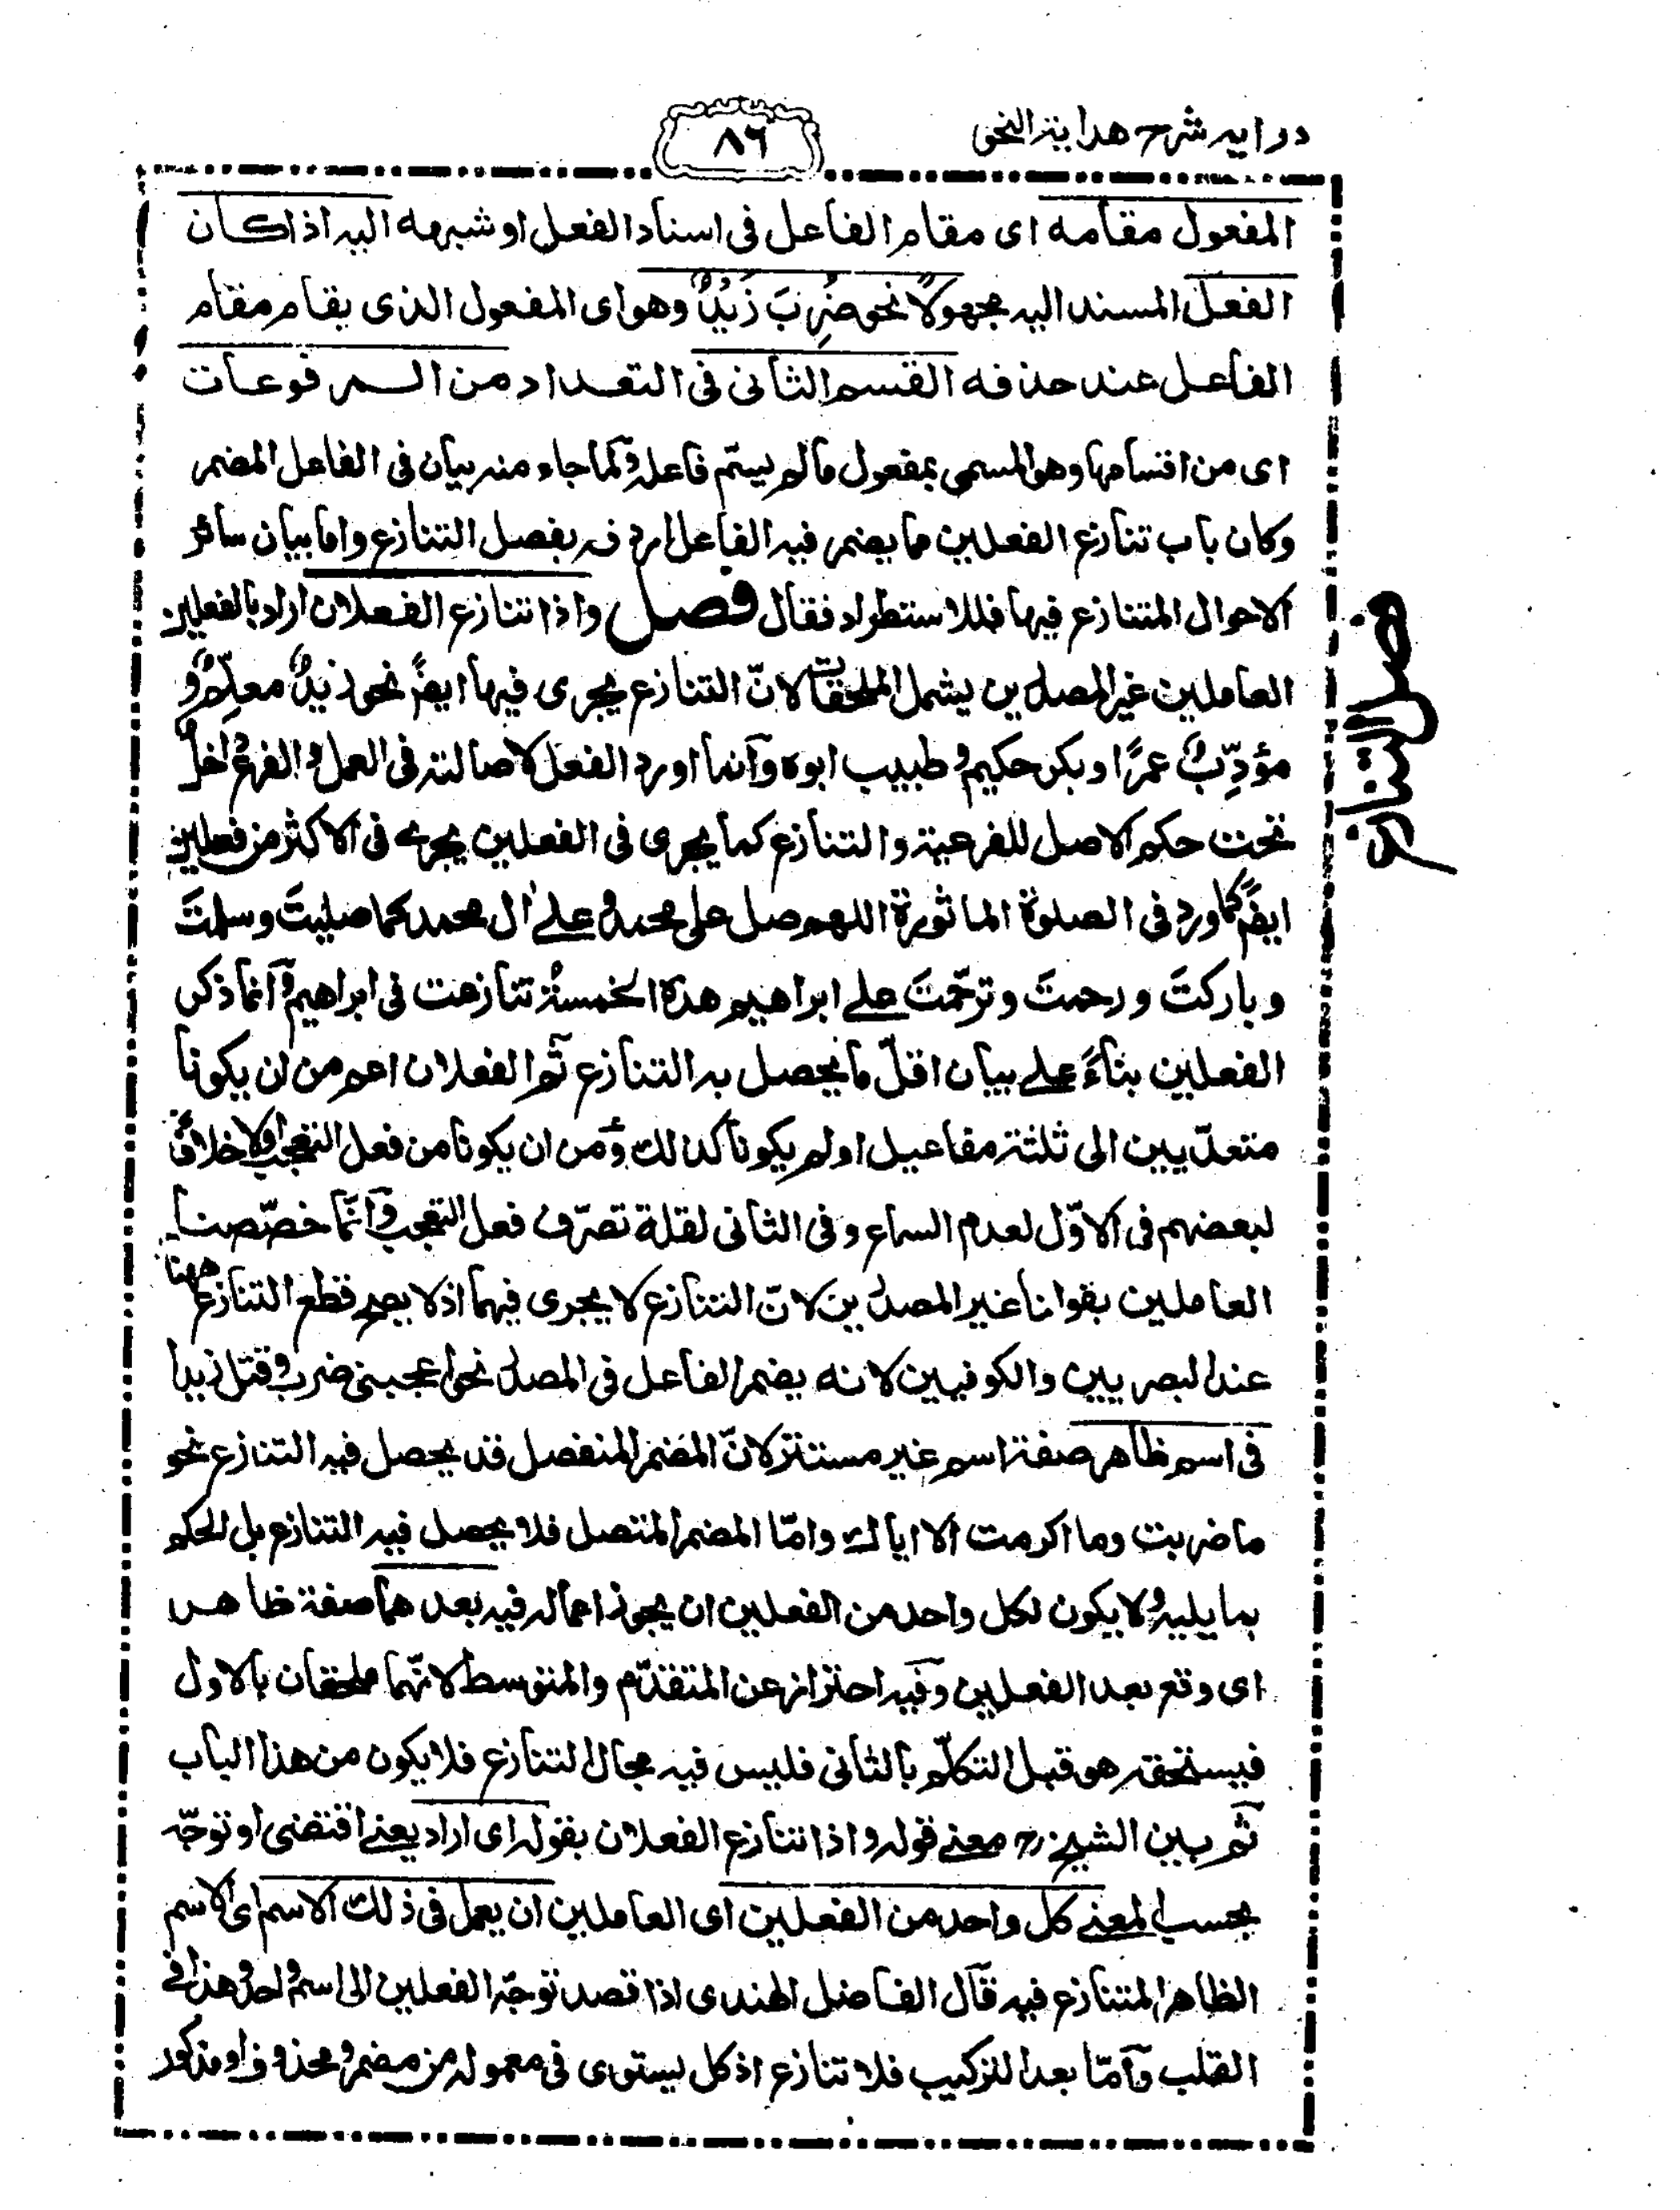 درايه شرح هداية النحو
٨٦
المفعول مقامه اى مقام الفاعل فى اسناد الفعل او شبهه اليه اذا كان
الفعل المسند اليه مجهولًا نحو ضُرِبَ زَيْدٌ وهو اى المفعول الذى يقام مقام
الفاعل عند حذفه القسم الثانى فى التعداد من المرفوعات
اى من اقسامها وهو المسمى بمفعول مالم يسمّ فاعله وّلما جاء منه بيان فى الفاعل المضمر
وكان باب تنازع الفعلين مما يضمر فيه الفاعل اردفه بفصل التنازع واما بيان سائر
الاحوال المتنازع فيها فللاستطراد فقال فصل واذا تنازع الفعلان اراد بالفعلين
العاملين غير المصدرين يشمل الملحقات لانّ التنازع يجرى فيها ايضًا نحو زيدٌ معلِّمٌ و
مؤدِّبٌ عمرًا وبكر حكيم وطبيب ابوه وآنما اورد الفعل لاصالته فى العمل والفرع داخلٌ
تحت حكم الاصل للفرعية والتنازع كما يجرى فى الفعلين يجرى فى الاكثر من فعلين
ايضًا كما ورد فى الصلوة الماثورة اللهم صل على محمد وعلى اٰل محمد كما صليتَ وسلمتَ
وباركتَ ورحمتَ وترحّمتَ على ابراهيم هذه الخمسةُ تنازعت فى ابراهيم وآنما ذكر
الفعلين بناءً على بيان اقلّ ما يحصل به التنازع ثم الفعلان اعم من ان يكونا
متعدّيين الى ثلثة مفاعيل او لم يكونا كذالك ومن ان يكونا من فعل التعجب اولا خلافًا
لبعضهم فى الاوّل لعدم السماع وفى الثانى لقلة تصرّف فعل التعجب وآنّما خصّصنا
العاملين بقولنا غير المصدرين لانّ التنازع لا يجرى فيهما اذ لا يصح قطع التنازع ههنا
عند البصريين والكوفيين لانه يضمر الفاعل فى المصدر نحو اعجبنى ضرب وقتل زيدا
فى اسم ظاهر صفة اسم غير مستتر لانّ المضمر المنفصل قد يحصل فيه التنازع نحو
ما ضربت وما اكرمت الا اياك وامّا المضمر المتصل فلا يحصل فيه التنازع بل الحكم
بما يليه ولا يكون لكل واحد من الفعلين ان يجوز اعماله فيه بعدهما صفة ظاهر
اى وقع بعد الفعلين وفيه احتراز عن المتقدّم والمتوسط لانّهما ملحقان بالاول
فيستحقه هو قبل التكلّم بالثانى فليس فيه مجال التنازع فلا يكون من هذا الباب
ثم بين الشيخ رح معنى قوله واذا تنازع الفعلان بقوله اى اراد يعنى اقتضى او توجّه
بحسب المعنى كل واحد من الفعلين اى العاملين ان يعمل فى ذلك الاسم اى الاسم
الظاهر المتنازع فيه قال الفاضل الهندى اذا قصد توجّه الفعلين الى اسم واحد وهذا فى
القلب وآمّا بعد التركيب فلا تنازع اذ كل يستوى فى معموله من مضمر ومحذوف او مذكور
فصل التنازع